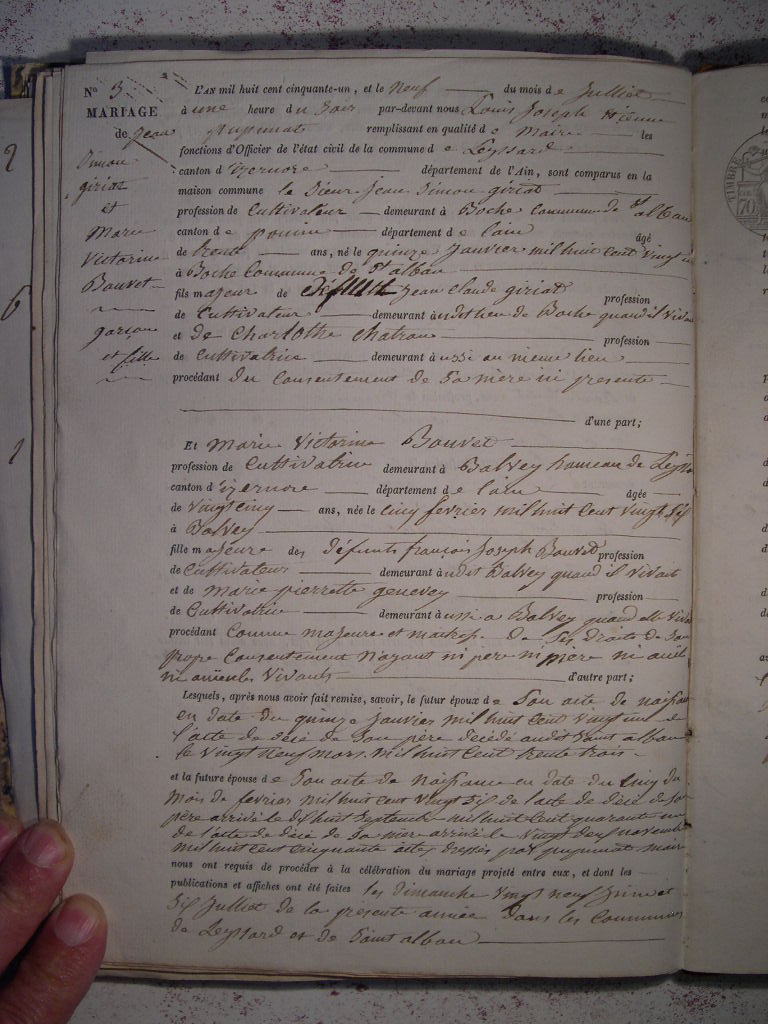 N° 3
MARIAGE
de Jean
Simon
giriat
et
Marie
Victorine
Bouvet
garçon
et fille
L'AN mil huit cent cinquante-un, et le neuf du mois de Julliet
à une heure du Soir par-devant nous Louis Joseph Etienne
remplissant en qualité de Maire les
fonctions d'Officier de l'état civil de la commune de Leyssard
canton d'izernore département de l'Ain, sont comparus en la
maison commune le Sieur Jean Simon giriat
profession de Cultivateur demeurant à Boche Commune de St alban
canton de poncin département de lain âgé
de trente ans, né le quinze Janvier mil huit cent vingt un
à Boche Commune de St alban
fils majeur de défunt Jean Claude giriat profession
de Cultivateur demeurant à udit lieu de Boche quand il vivait
et de Charlothe Chatron profession
de Cultivatrice demeurant à ussi au meme lieu
procédant du Consentement de Sa mere ici presente
d'une part;
Et Marie Victorine Bouvet
profession de Cultivatrice demeurant à Balvey hameau de Leyssard
canton d'izernore département de lain âgée
de vingt cinq ans, née le cinq fevrier mil huit Cent vingt Sif
à Balvey
fille majeure des défunts françois Joseph Bouvet profession
de Cultivateur demeurant à udit Balvey quand il vivait
et de Marie pierrette genevey profession
de Cultivatrice demeurant à ussi a Balvey quand elle vivait
procédant Comme majeure et maitresse de Ses droits de Son
propre Consentement Nayant ni pere ni mere ni aieul
ni aieules vivants d'autre part;
Lesquels, après nous avoir fait remise, savoir, le futur époux de Son acte de naissance
en date du quinze Janvier mil huit cent vingt un de
l'acte de décé de Son père décédé audit Saint alban
le vingt neuf mars mil huit Cent trente trois
et la future épouse de Son acte de Naissance en date du Cinq du
mois de fevrier mil huit Cent vingt Sif de l'acte de décé de Son
père arrivé le dix huit Septembre mil huit Cent quarante un
de l'acte de décé de Sa mere arrivé le vingt deux novembre
mil huit Cent cinquante actes dressés par maire
nous ont requis de procéder à la célébration du mariage projeté entre eux, et dont les
publications et affiches ont été faites les dimanche vingt neuf Juin et
Sif Julliet de la présente année dans les Communes
de Leyssard et de Saint alban
TIMBRE
70